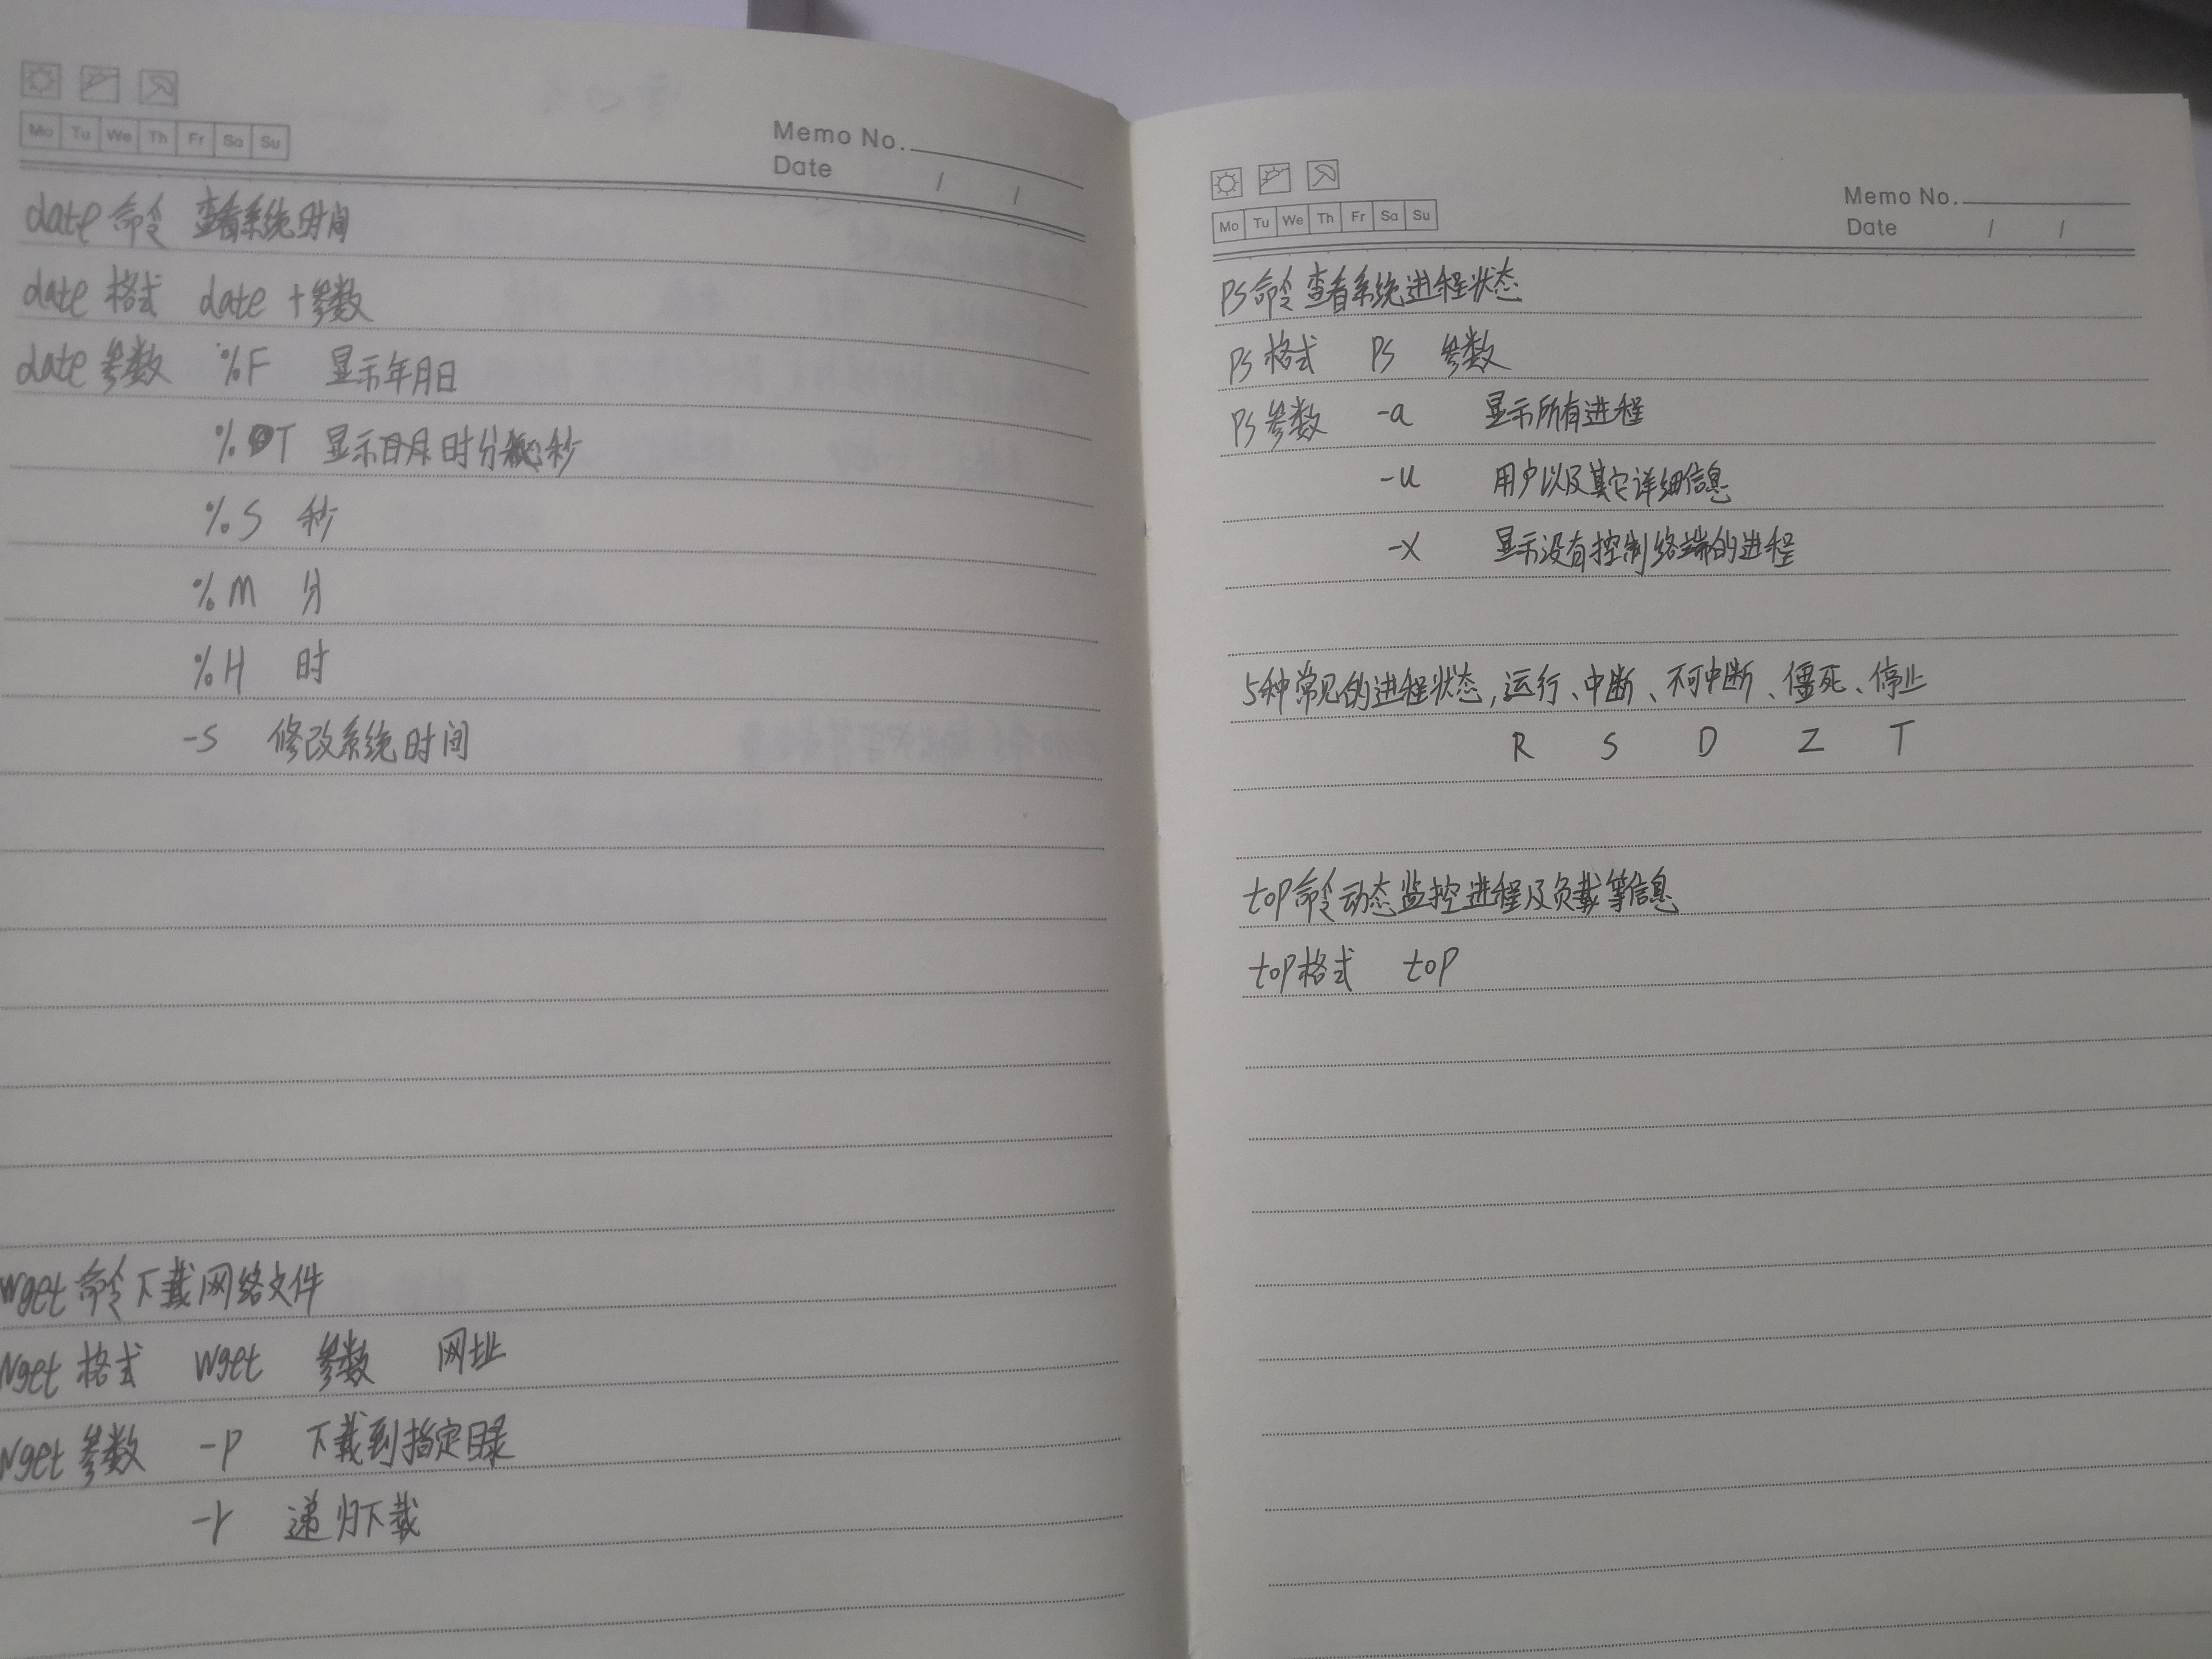 Mo Tu We Th Fr Sa Su
Memo No.
Date / /
date 命令 查看系统时间
date 格式 date +参数
date 参数 %F 显示年月日
%T 显示 时分 秒
%S 秒
%M 分
%H 时
-s 修改系统时间
wget 命令下载网络文件
wget 格式 wget 参数 网址
wget 参数 -p 下载到指定目录
-r 递归下载
Mo Tu We Th Fr Sa Su
Memo No.
Date / /
ps命令 查看系统进程状态
ps 格式 ps 参数
ps 参数 -a 显示所有进程
-u 用户以及其它详细信息
-x 显示没有控制终端的进程
5种常见的进程状态,运行、中断、不可中断、僵死、停止
R S D Z T
top命令动态监控进程及负载等信息
top格式 top